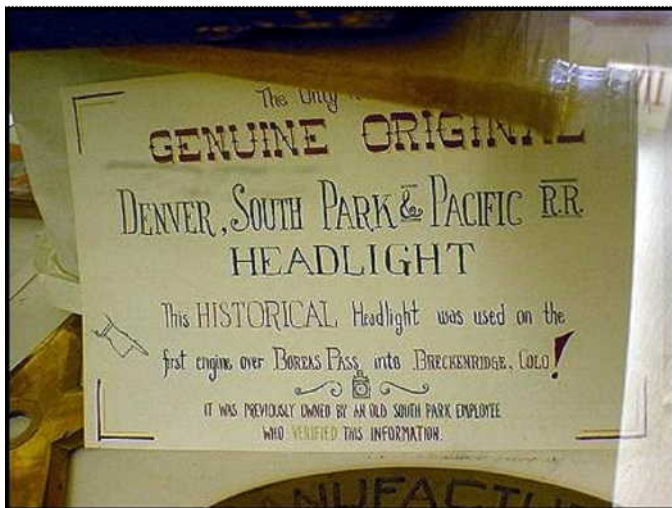 The Only
GENUINE ORIGINAL
DENVER, SOUTH PARK & PACIFIC R.R.
HEADLIGHT
This HISTORICAL Headlight was used on the
first engine over BOREAS PASS, into BRECKENRIDGE, COLO!
IT WAS PREVIOUSLY OWNED BY AN OLD SOUTH PARK EMPLOYEE
WHO VERIFIED THIS INFORMATION.